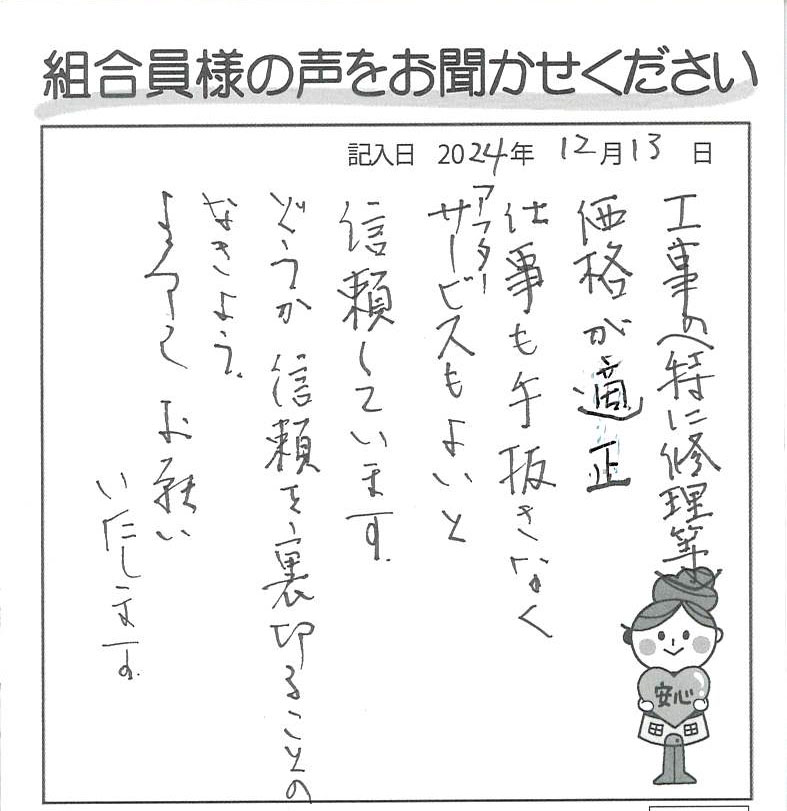 組合員様の声をお聞かせください
記入日 2024年 12月13日
工事の(特に修理等)
価格が適正
仕事も手抜きなく
アフター
サービスもよいと
信頼しています。
どうか信頼を裏切ることの
なきよう。
よろしくお願い
いたします。
安心